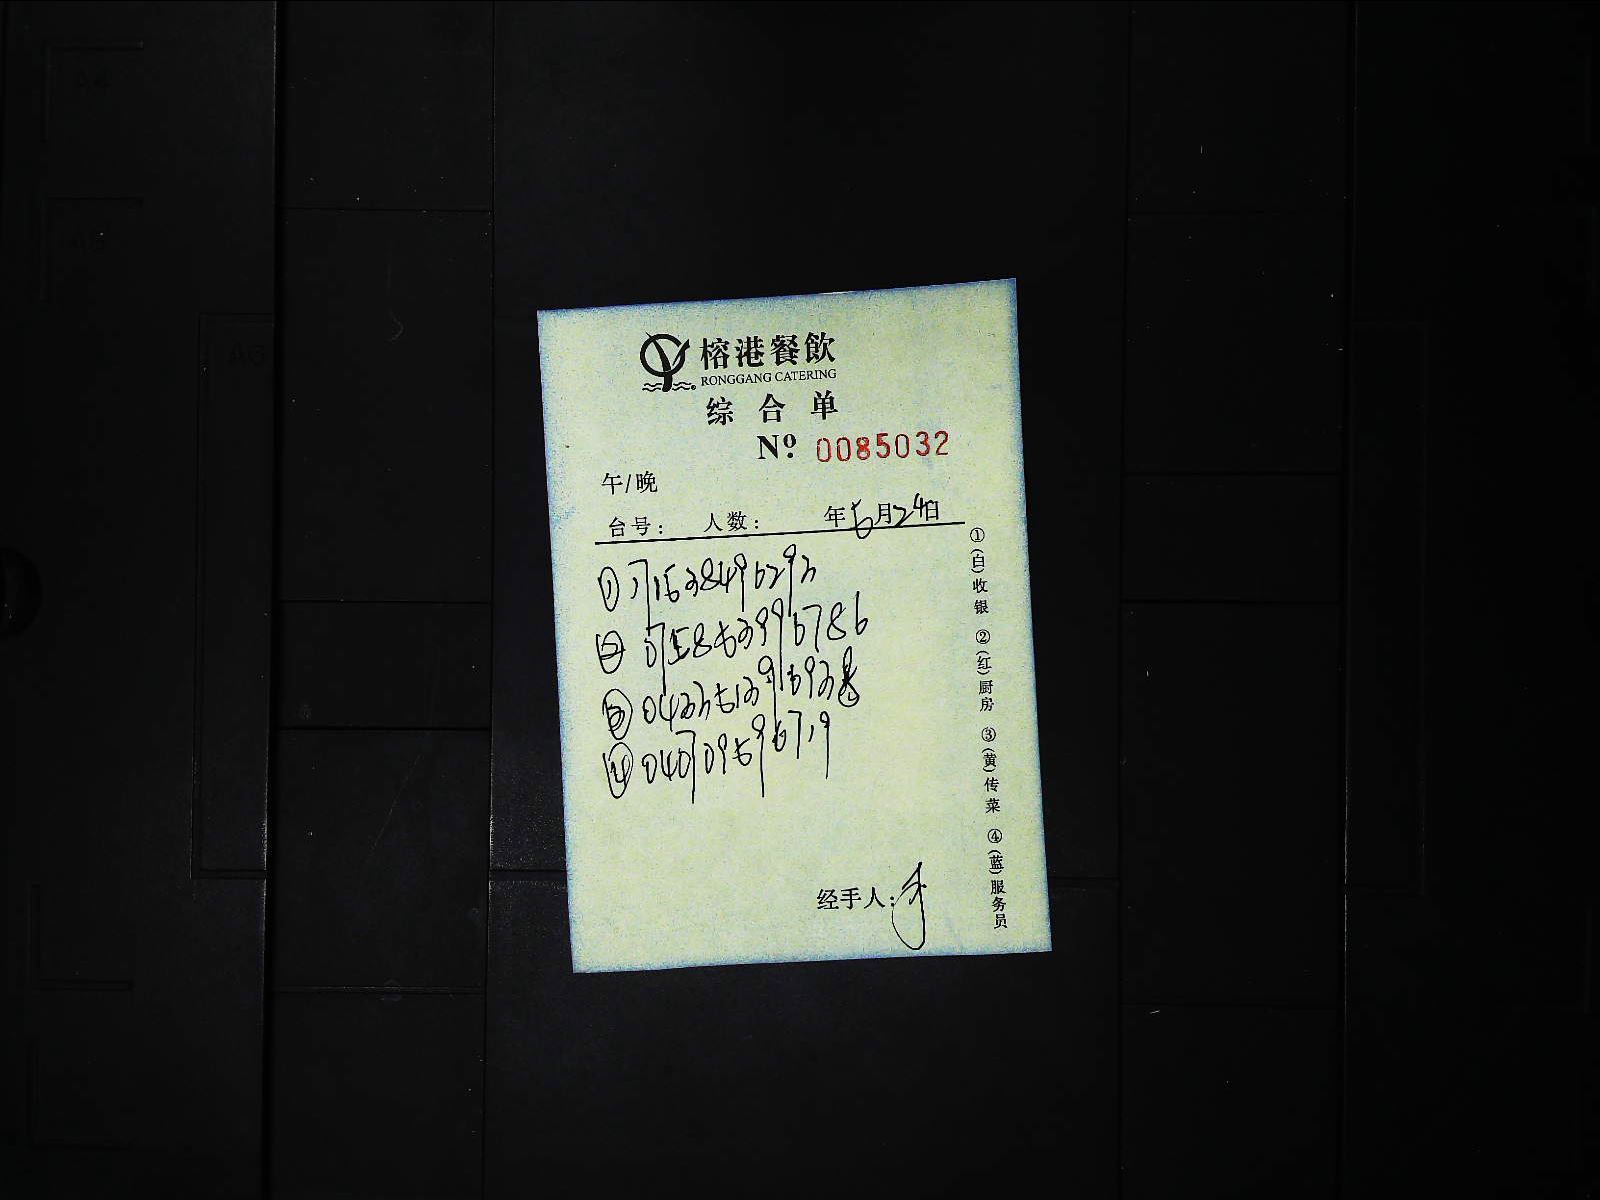 榕港餐飲
RONGGANG CATERING
综合单
Nº 0085032
午/晚
台号： 人数： 年5月24日
① 171538496293
② 0715853996786
③ 04335139659338
④ 040709596719
经手人：
①(白)收银 ②(红)厨房 ③(黄)传菜 ④(蓝)服务员